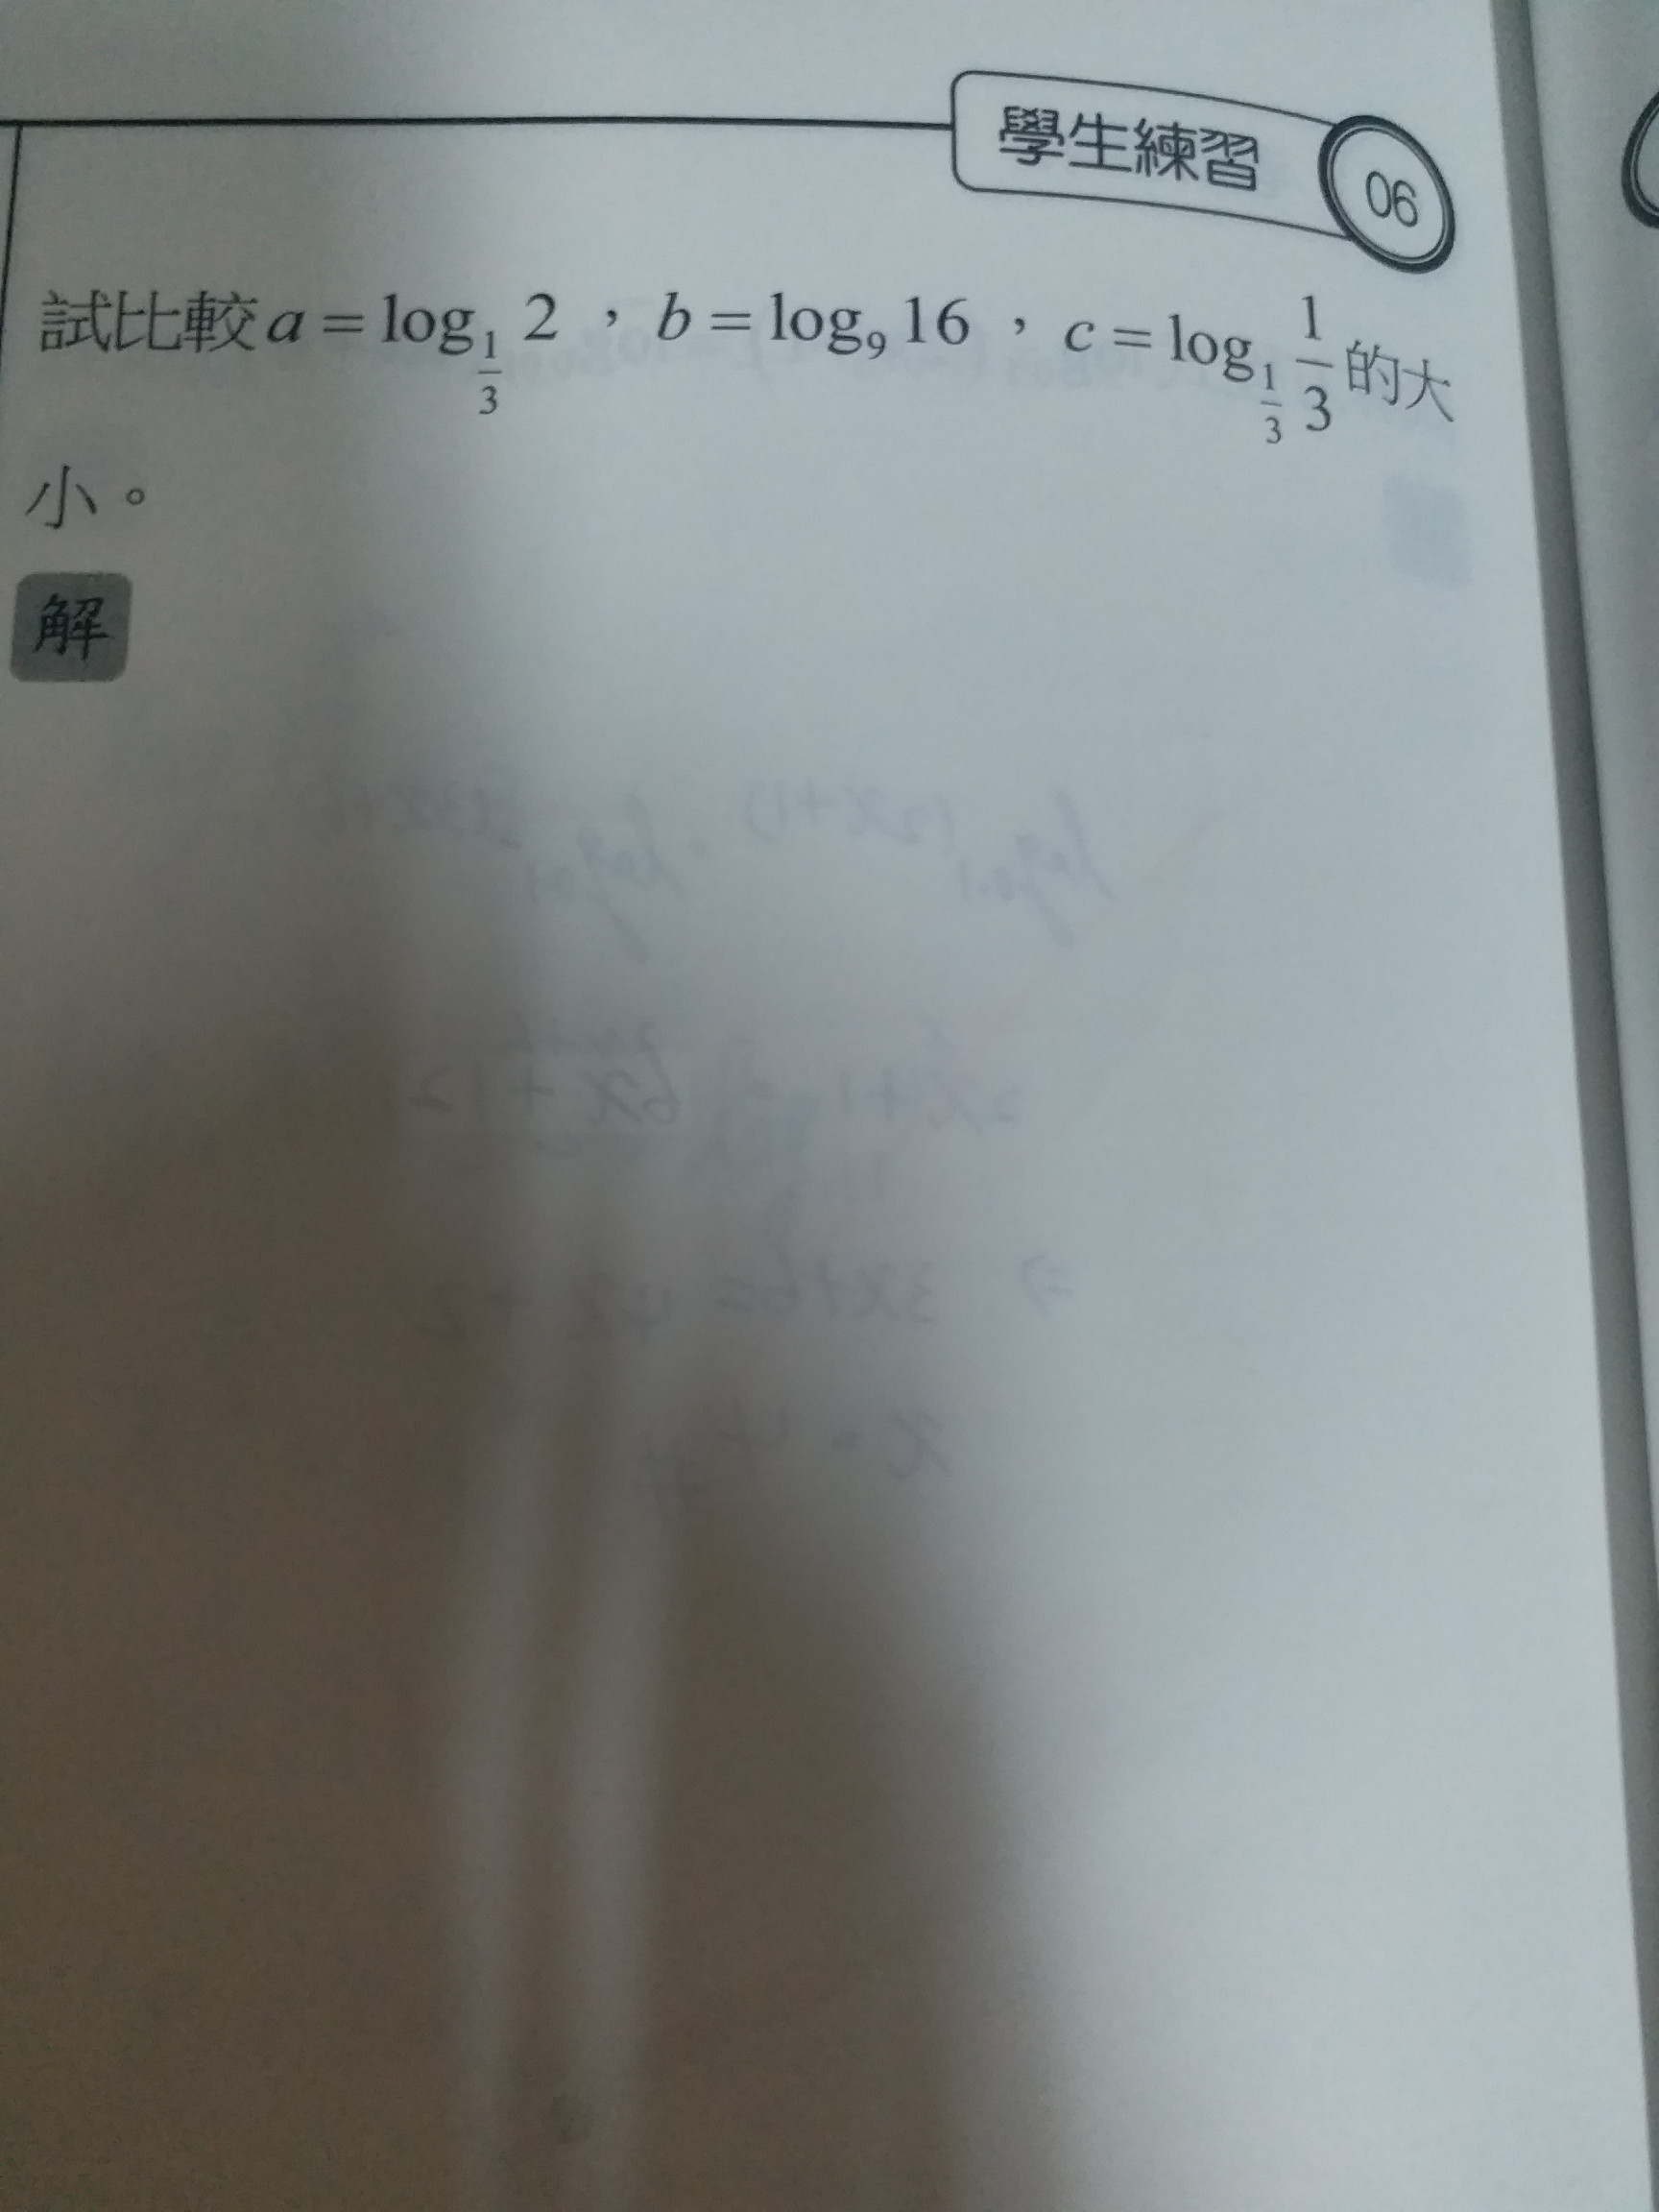 學生練習 06
試比較 a = log_{\frac{1}{3}} 2 , b = log_9 16 , c = log_{\frac{1}{3}} \frac{1}{3} 的大
小。
解